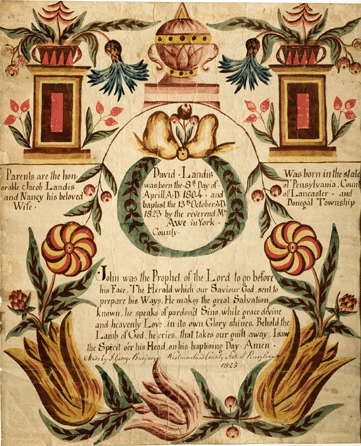 Parents are the hon-
orable Jacob Landis
and Nancy his beloved
Wife.
David Landis
was born the 8th Day of
Aprill AD 1804 and
baptist the 13th October AD
1823 by the reverend Mr
Awe in York
County.
Was born in the state
of Pensylvania County
of Lancaster and
Donegal Township
John was the Prophet of the Lord to go before
his Face, The Herald which our Saviour God sent to
prepare his Ways, He makes the great Salvation
known, he speaks of pardond Sins, while grace divine
and heavenly Love in its own Glory shines, Behold the
Lamb of God, he cries, that takes our guilt away, I saw
the Spirit o'er his Head, on his baptising Day Amen.
Made by Westmoreland County State of
1825